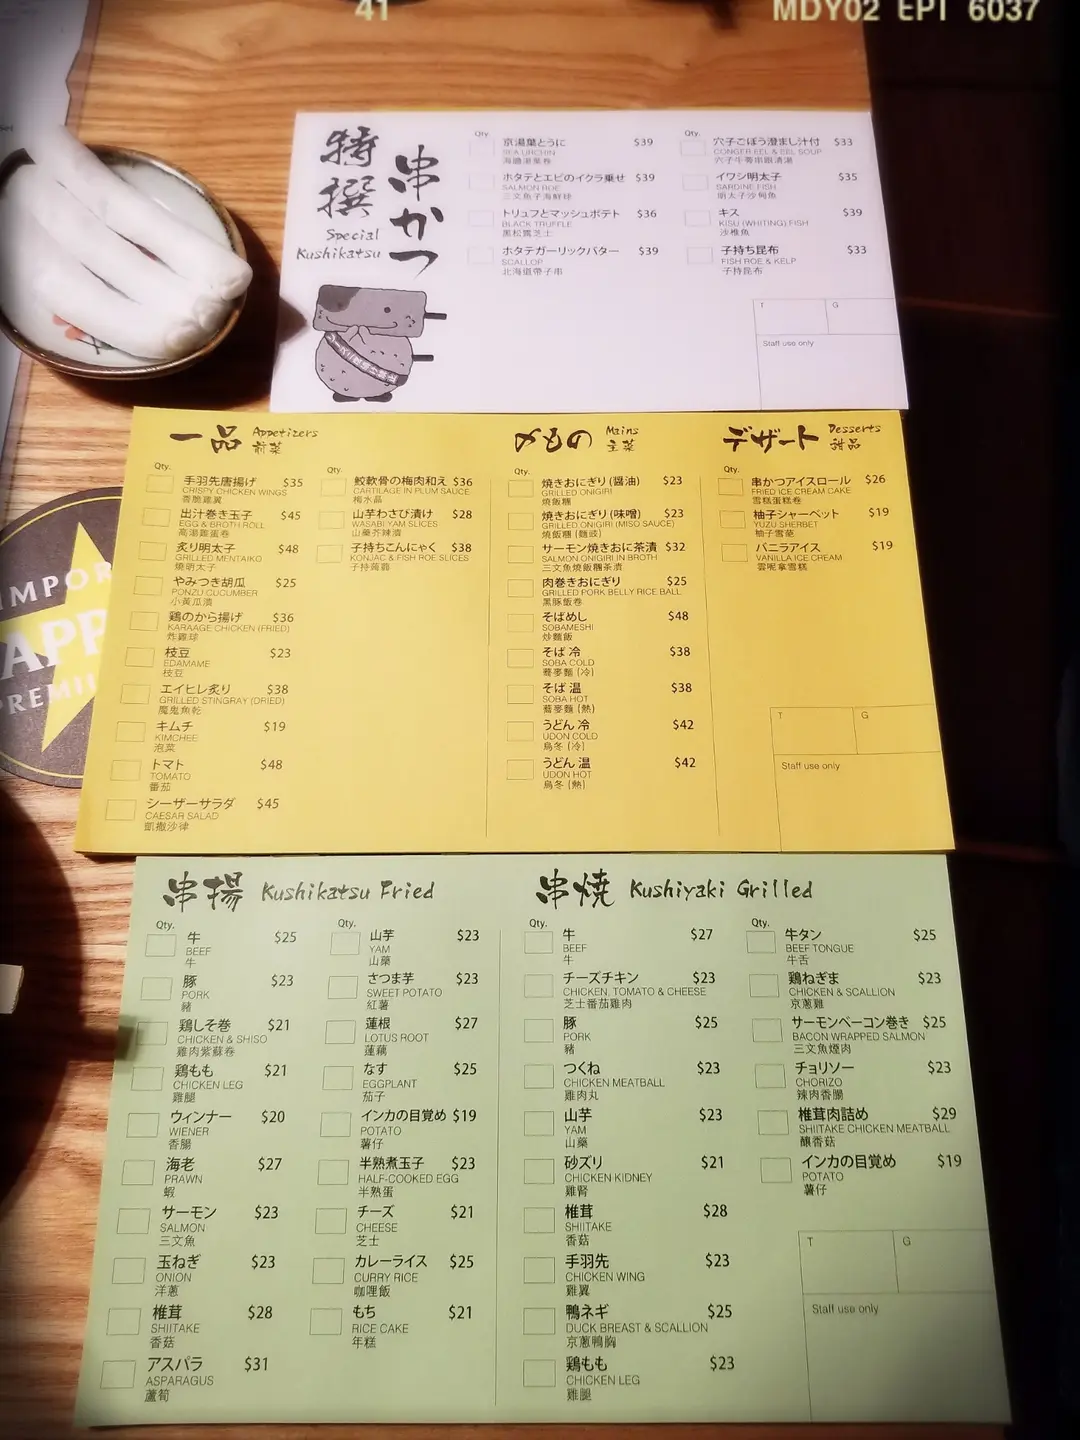 41
MDY02 EPI 6037
特撰
串かつ
Special
Kushikatsu
Qty.
京湯葉とうに $39
SEA URCHIN
海膽湯葉卷
ホタテとエビのイクラ乗せ $39
SALMON ROE
三文魚子海鮮球
トリュフとマッシュポテト $36
BLACK TRUFFLE
黑松露芝士
ホタテガーリックバター $39
SCALLOP
北海道帶子串
Qty.
穴子ごぼう澄まし汁付 $33
CONGER EEL & EEL SOUP
穴子牛蒡串跟清湯
イワシ明太子 $35
SARDINE FISH
明太子沙甸魚
キス $39
KISU (WHITING) FISH
沙椎魚
子持ち昆布 $33
FISH ROE & KELP
子持昆布
T G
Staff use only
一品 Appetizers
前菜
Qty.
手羽先唐揚げ $35
CRISPY CHICKEN WINGS
香脆雞翼
出汁巻き玉子 $45
EGG & BROTH ROLL
高湯雞蛋卷
炙り明太子 $48
GRILLED MENTAIKO
燒明太子
やみつき胡瓜 $25
PONZU CUCUMBER
小黃瓜漬
鶏のから揚げ $36
KARAAGE CHICKEN (FRIED)
炸雞球
枝豆 $23
EDAMAME
枝豆
エイヒレ炙り $38
GRILLED STINGRAY (DRIED)
魔鬼魚乾
キムチ $19
KIMCHEE
泡菜
トマト $48
TOMATO
番茄
シーザーサラダ $45
CAESAR SALAD
凱撒沙律
Qty.
鮫軟骨の梅肉和え $36
CARTILAGE IN PLUM SAUCE
梅水晶
山芋わさび漬け $28
WASABI YAM SLICES
山藥芥辣漬
子持ちこんにゃく $38
KONJAC & FISH ROE SLICES
子持蒟蒻
〆もの Mains
主菜
Qty.
焼きおにぎり(醤油) $23
GRILLED ONIGIRI
燒飯糰
焼きおにぎり(味噌) $23
GRILLED ONIGIRI (MISO SAUCE)
燒飯糰 (麵豉)
サーモン焼きおに茶漬 $32
SALMON ONIGIRI IN BROTH
三文魚燒飯糰茶漬
肉巻きおにぎり $25
GRILLED PORK BELLY RICE BALL
黑豚飯卷
そばめし $48
SOBAMESHI
炒麵飯
そば 冷 $38
SOBA COLD
蕎麥麵 (冷)
そば 温 $38
SOBA HOT
蕎麥麵 (熱)
うどん 冷 $42
UDON COLD
烏冬 (冷)
うどん 温 $42
UDON HOT
烏冬 (熱)
デザート Desserts
甜品
Qty.
串かつアイスロール $26
FRIED ICE CREAM CAKE
雪糕蛋糕卷
柚子シャーベット $19
YUZU SHERBET
柚子雪葩
バニラアイス $19
VANILLA ICE CREAM
雲呢拿雪糕
T G
Staff use only
PREMIU
串揚 Kushikatsu Fried
Qty.
牛 $25
BEEF
牛
豚 $23
PORK
豬
鶏しそ巻 $21
CHICKEN & SHISO
雞肉紫蘇卷
鶏もも $21
CHICKEN LEG
雞腿
ウィンナー $20
WIENER
香腸
海老 $27
PRAWN
蝦
サーモン $23
SALMON
三文魚
玉ねぎ $23
ONION
洋蔥
椎茸 $28
SHIITAKE
香菇
アスパラ $31
ASPARAGUS
蘆筍
Qty.
山芋 $23
YAM
山藥
さつま芋 $23
SWEET POTATO
紅薯
蓮根 $27
LOTUS ROOT
蓮藕
なす $25
EGGPLANT
茄子
インカの目覚め $19
POTATO
薯仔
半熟煮玉子 $23
HALF-COOKED EGG
半熟蛋
チーズ $21
CHEESE
芝士
カレーライス $25
CURRY RICE
咖哩飯
もち $21
RICE CAKE
年糕
串焼 Kushiyaki Grilled
Qty.
牛 $27
BEEF
牛
チーズチキン $23
CHICKEN, TOMATO & CHEESE
芝士番茄雞肉
豚 $25
PORK
豬
つくね $23
CHICKEN MEATBALL
雞肉丸
山芋 $23
YAM
山藥
砂ズリ $21
CHICKEN KIDNEY
雞腎
椎茸 $28
SHIITAKE
香菇
手羽先 $23
CHICKEN WING
雞翼
鴨ネギ $25
DUCK BREAST & SCALLION
京蔥鴨胸
鶏もも $23
CHICKEN LEG
雞腿
Qty.
牛タン $25
BEEF TONGUE
牛舌
鶏ねぎま $23
CHICKEN & SCALLION
京蔥雞
サーモンベーコン巻き $25
BACON WRAPPED SALMON
三文魚煙肉
チョリソー $23
CHORIZO
辣肉香腸
椎茸肉詰め $29
SHIITAKE CHICKEN MEATBALL
釀香菇
インカの目覚め $19
POTATO
薯仔
T G
Staff use only